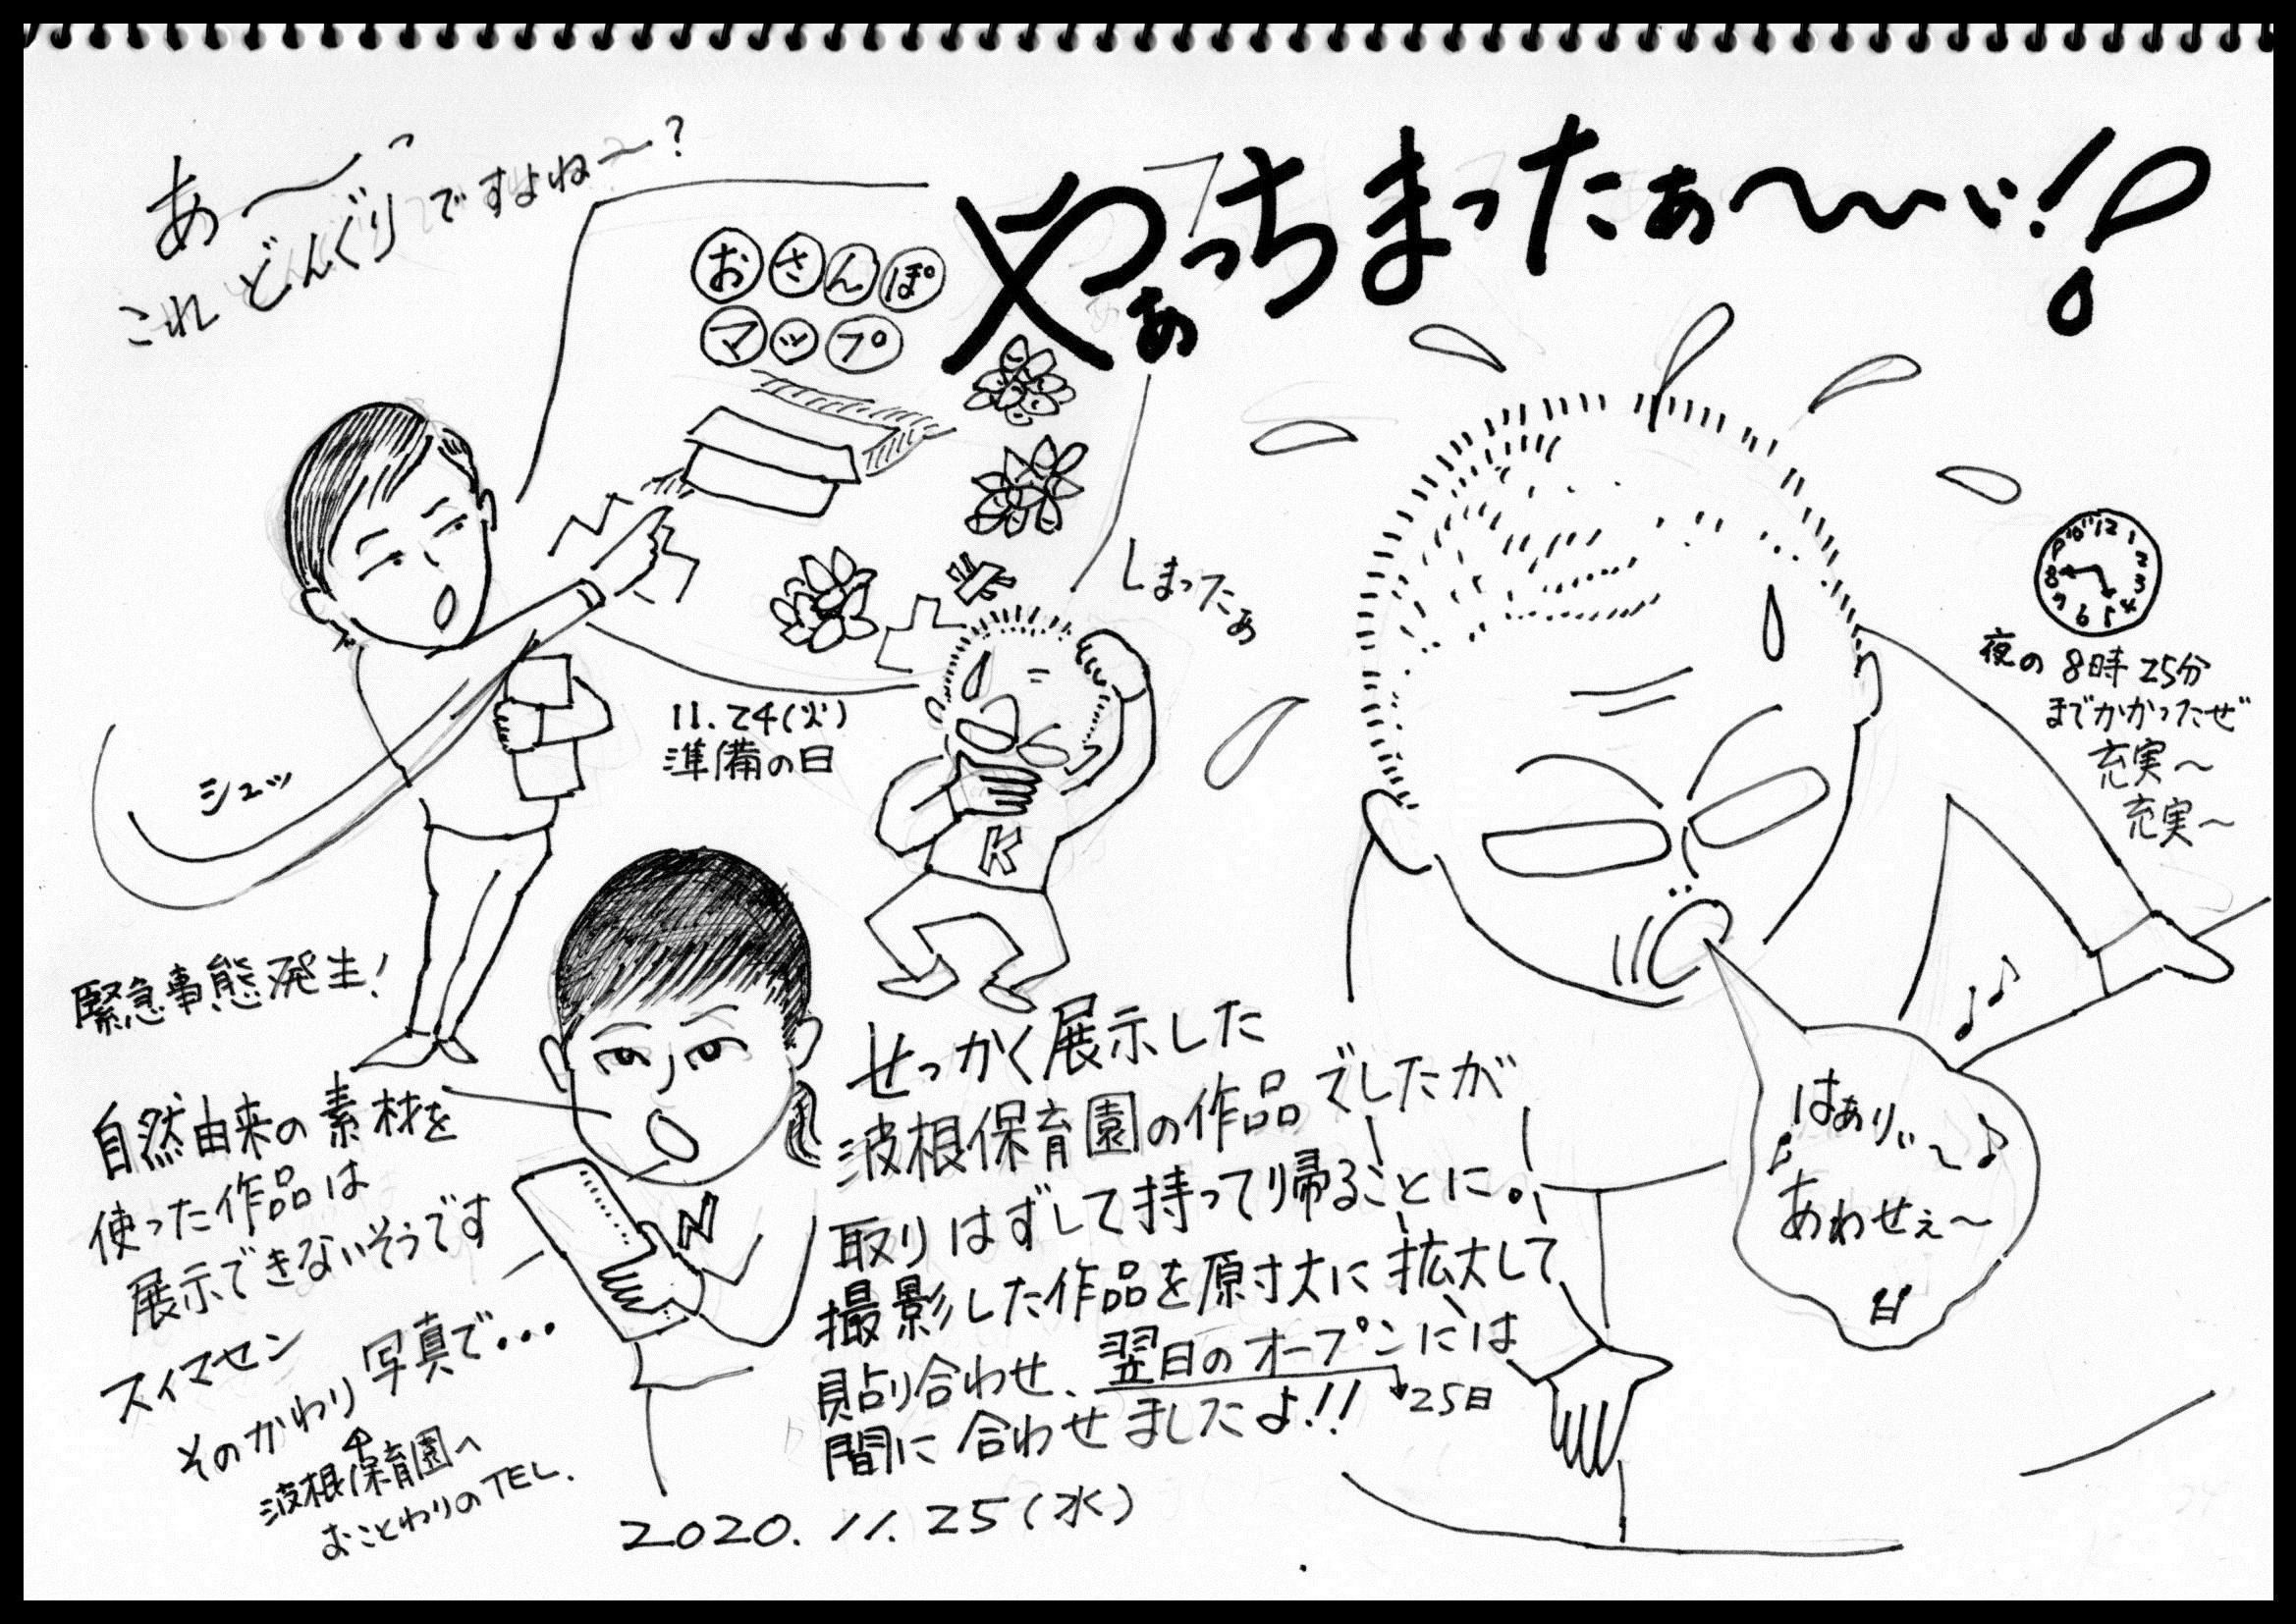 やぁっちまったぁ〜〜い!?
あ〜っ
これどんぐりですよね〜?
おさんぽ
マップ
しまったぁ
シュッ
11.24(火)
準備の日
K
夜の8時25分
までかかったぜ
充実〜
充実〜
緊急事態発生!
自然由来の素材を
使った作品は
展示できないそうです
スイマセン
そのかわり写真で...
波根保育園へ
おことわりのTEL.
N
せっかく展示した
波根保育園の作品でしたが
取りはずして持って帰ることに。
撮影した作品を原寸大に拡大して
貼り合わせ、翌日のオープンには
25日
間に合わせましたよ!!
2020.11.25(水)
はありぃ〜♪
あわせぇ〜